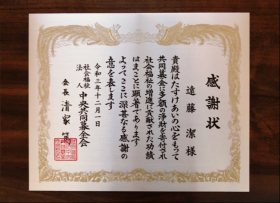 感謝状
遠藤潔様
貴殿はたすけあいの心をもって
共同募金に多額の浄財を寄付され
社会福祉の増進に貢献された功績
はまことに顕著であります
よってここに深甚なる感謝の
意を表します
令和三年十二月一日
社会福祉法人 中央共同募金会
会長 清家篤